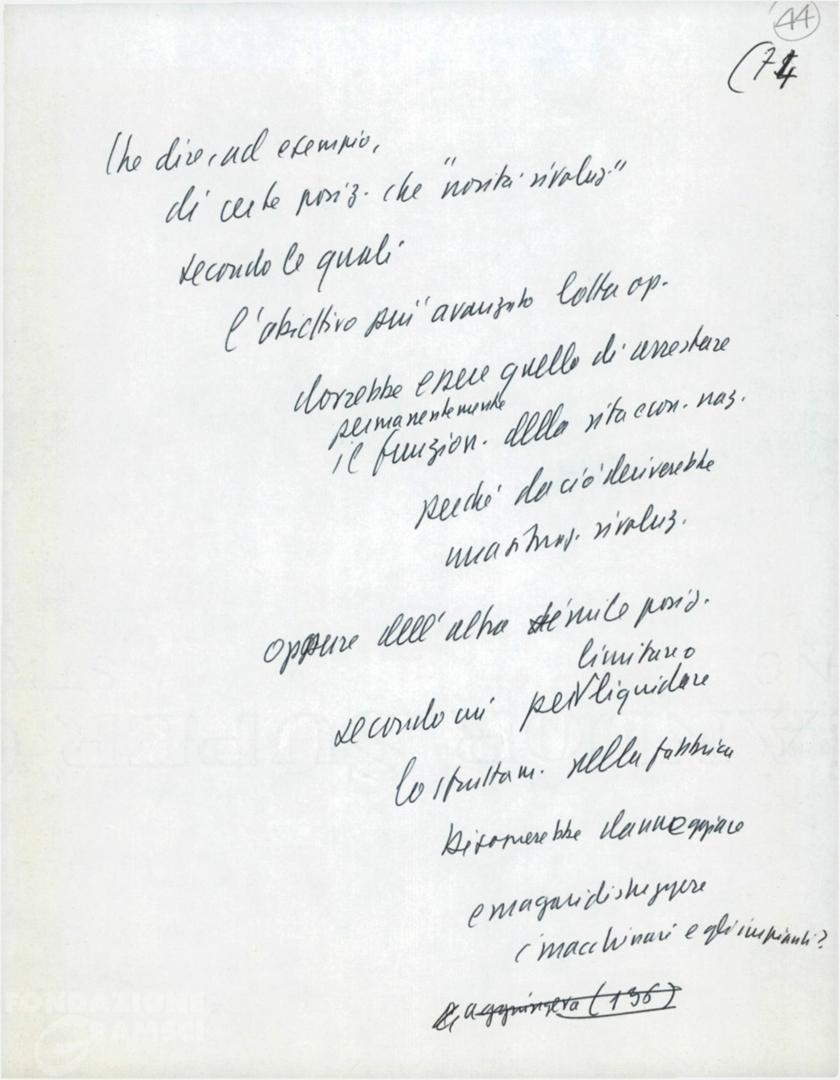 44
(74
Che dire, ad esempio,
di certe posiz. che "novità rivoluz."
secondo le quali
l'obiettivo più avanzato lotta op.
dovrebbe essere quello di arrestare
permanentemente
il funzion. della vita econ. naz.
perché da ciò deriverebbe
una situaz. rivoluz.
oppure dell'altra simile posiz.
limitare o
secondo cui per liquidare
lo sfruttam. nella fabbrica
bisognerebbe danneggiare
e magari distruggere
i macchinari e gli impianti?
aggiungeva (136)
FONDAZIONE
GRAMSCI